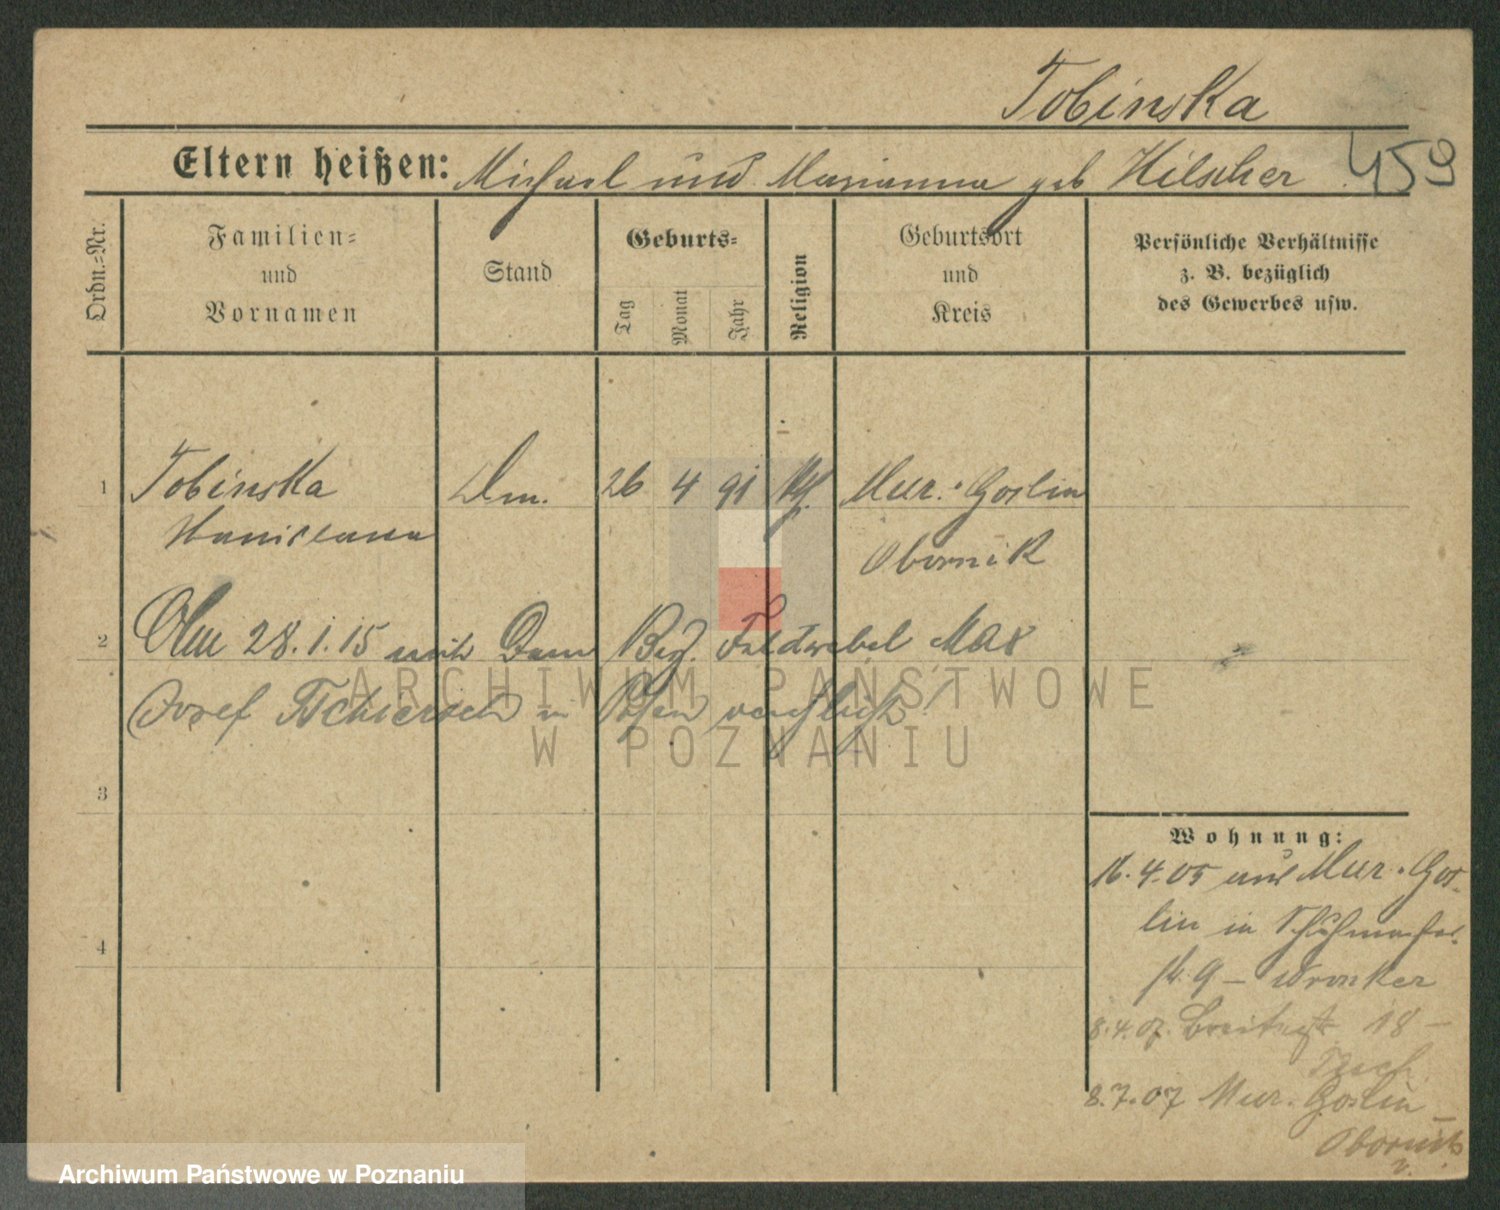 Tobinska
Eltern heißen: Michael und Marianna geb Hilscher 459
Ordn.-Nr.
Familien-
und
Vornamen
Stand
Geburts-
Tag
Monat
Jahr
Religion
Geburtsort
und
Kreis
Persönliche Verhältnisse
z. B. bezüglich
des Gewerbes usw.
1 Tobinska 26 4 91 Mur. Goslin
Stanislawa Obornik
2 Am 28.1.15 mit dem Feldwebel Max
Josef Tschiersch in Posen verehlicht!
3
4
Wohnung:
16.4.05 aus Mur. Gos-
lin in
9 – Wronker
8.4.07. Breitestr 18 –
8.7.07 Mur. Goslin –
Obornik
ARCHIWUM PAŃSTWOWE
W POZNANIU
Archiwum Państwowe w Poznaniu